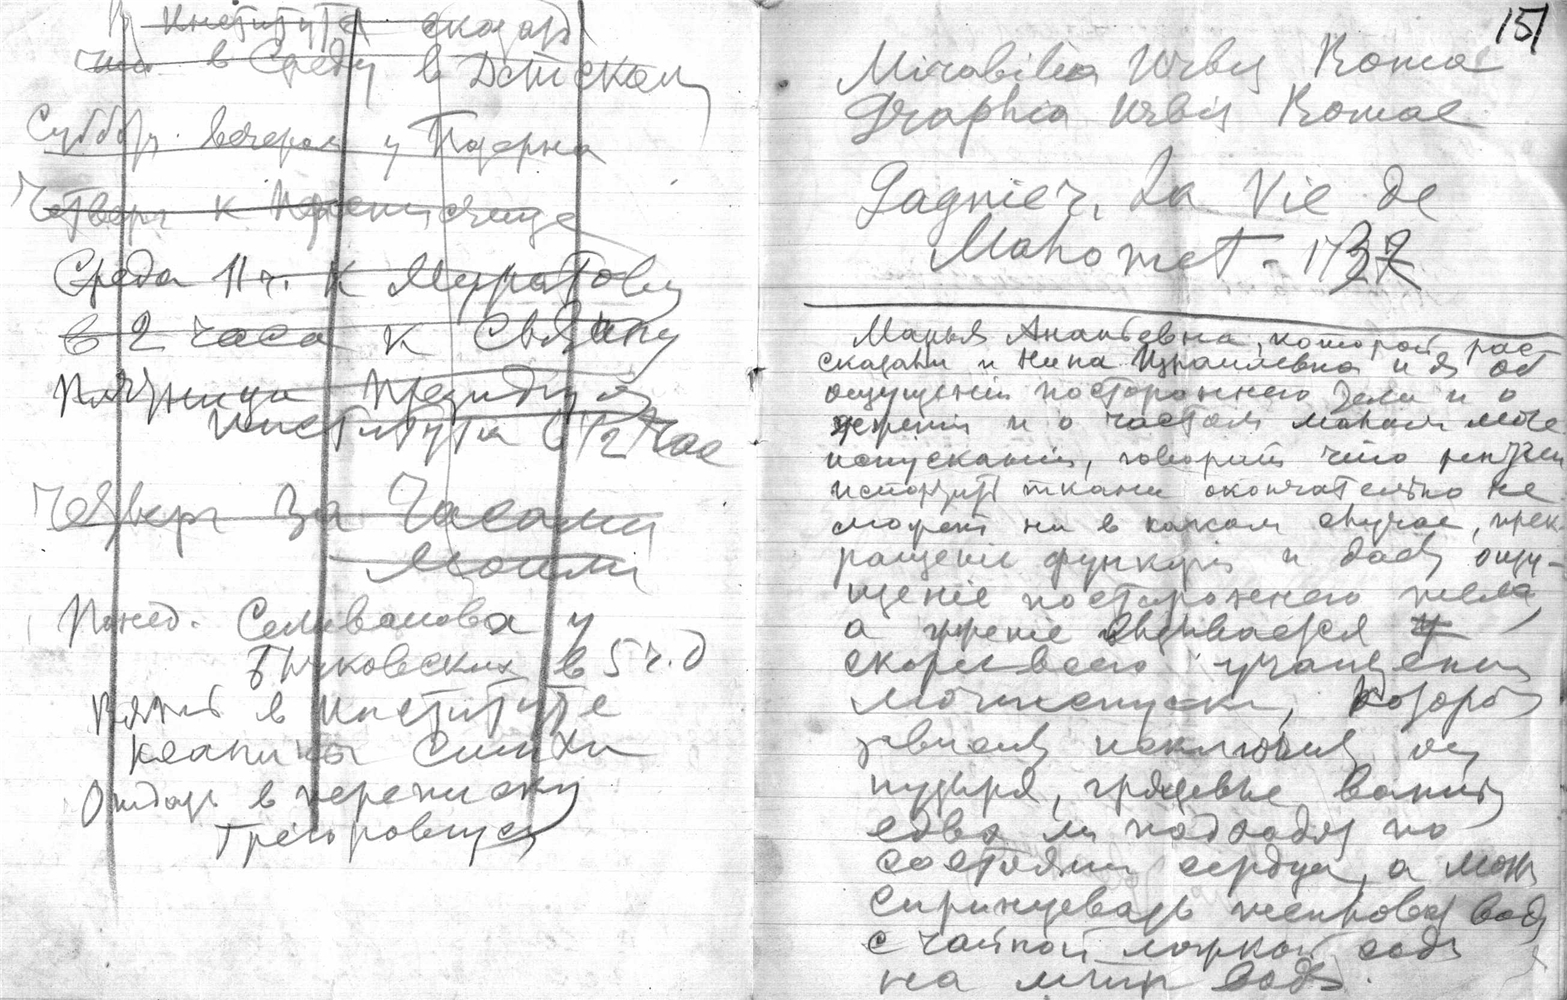 в Институте сказать
что в Среду в Детском
Суббот. вечером у
Четверг к
Среда 11 ч. к Муратову
в 2 часа к
Пятница Президиум
Института в 2 час
Четверг За Часами
Моими
Понед. Селиванова у
Бычковских в 5 ч. д
Пятн в Институте
Отдать в переписку
Григоровиуса
151
Mirabilia Urbis Romae
Graphia Urbis Romae
Gagnier, La Vie de
Mahomet - 1732
Марья Ананьевна, которой рас
сказали и Нина Израилевна и я об
ощущении постороннего тела и о
жжении и о частом малом моче
испускании, говорит что рентген
испортить ткани окончательно не
может ни в каком случае, прек
ращение функции и дает ощу-
щение постороннего тела,
а жжение
скорее всего учащением
мочеиспуск,
исключит
пузыря, грязевые ванны
едва ли подходят по
состоянию сердца, а можно
спринцевать кипяченой водой
с чайной ложкой соды
на литр воды.